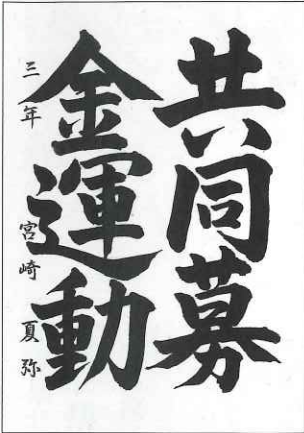 共同募
金運動
三年 宮崎夏弥